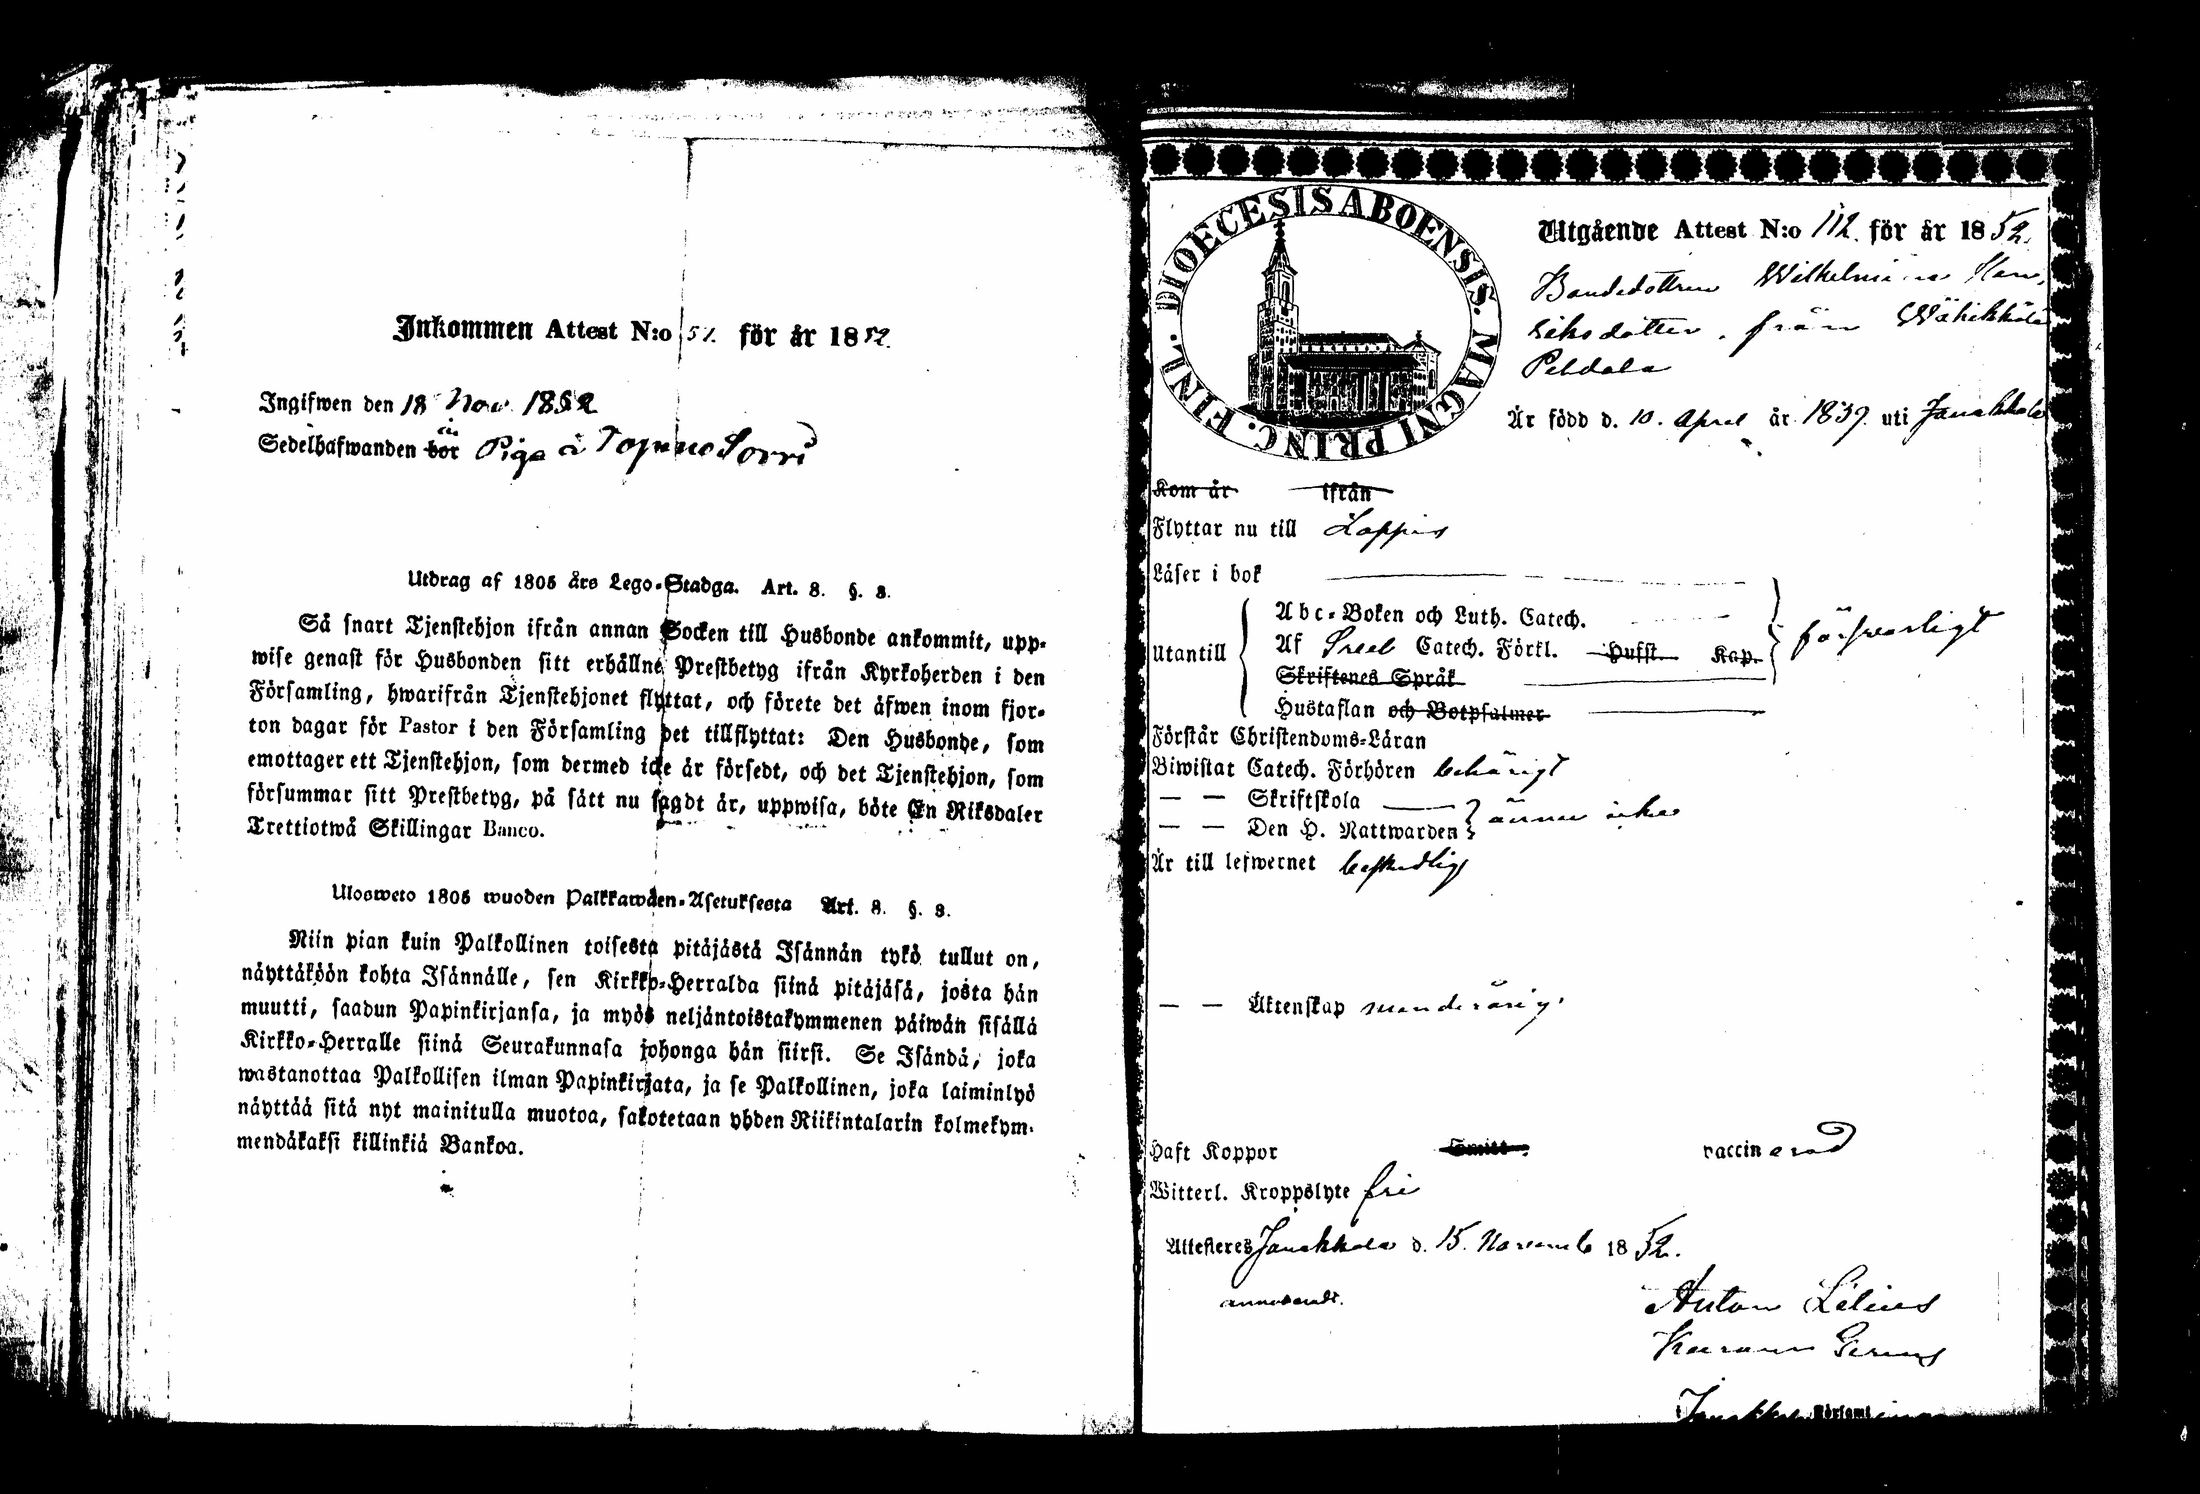 Inkommen Attest N:o 52. för år 1852.
Ingifwen den 18 Nov. 1852
Sedelhafwanden bor är Piga å Topeno Sorri
Utdrag af 1805 års Lego-Stadga. Art. 8. §. 8.
Så snart Tjenstehjon ifrån annan Socken till Husbonde ankommit, upp-
wise genast för Husbonden sitt erhållne Prestbetyg ifrån Kyrkoherden i den
Församling, hwarifrån Tjenstehjonet flyttat, och förete det äfwen inom fjor-
ton dagar för Pastor i den Församling det tillflyttat: Den Husbonde, som
emottager ett Tjenstehjon, som dermed icke är försedt, och det Tjenstehjon, som
försummar sitt Prestbetyg, på sätt nu sagdt är, uppwisa, böte En Riksdaler
Trettiotwå Skillingar Banco.
Ulosweto 1805 wuoden Palkkawäen-Asetuksesta Art. 8. §. 8.
Niin pian kuin Palkollinen toisesta pitäjästä Isännän tykö tullut on,
näyttäköön kohta Isännälle, sen Kirkko-Herralda siinä pitäjäsä, josta hän
muutti, saadun Papinkirjansa, ja myös neljäntoistakymmenen päiwän sisällä
Kirkko-Herralle siinä Seurakunnasa johonga hän siirsi. Se Isändä, joka
wastanottaa Palkollisen ilman Papinkirjata, ja se Palkollinen, joka laiminlyö
näyttää sitä nyt mainitulla muotoa, sakotetaan yhden Riikintalarin kolmekym-
mendäkaksi killinkiä Bankoa.
DIOECESIS ABOENSIS. MAGNI PRINC. FINL.
Utgående Attest N:o 112. för år 1852.
Bondedottren Wilhelmina Hen-
riksdotter, från Wähikkälä
Peldola
Är född d. 10. April år 1839. uti Janakkala
Kom år ifrån
Flyttar nu till Loppis
Läser i bok
Utantill
Abc-Boken och Luth. Catech.
Af Sveb Catech. Förkl. Hufst. Kap.
försvarligt
Skriftenes Språk
Hustaflan och Botpsalmer
Förstår Christendoms-Läran
Biwistat Catech. Förhören behörigt
— — Skriftskola
— — Den H. Nattwarden
ännu icke
Är till lefwernet beskedlig
— — Äktenskap minderårig.
Haft Koppor Smitt. vaccinerad
Witterl. Kroppslyte fri
Attesteres Janakkala d. 15. Novemb 1852.
annoteradt.
Anton Lilius
Janakkala Församl